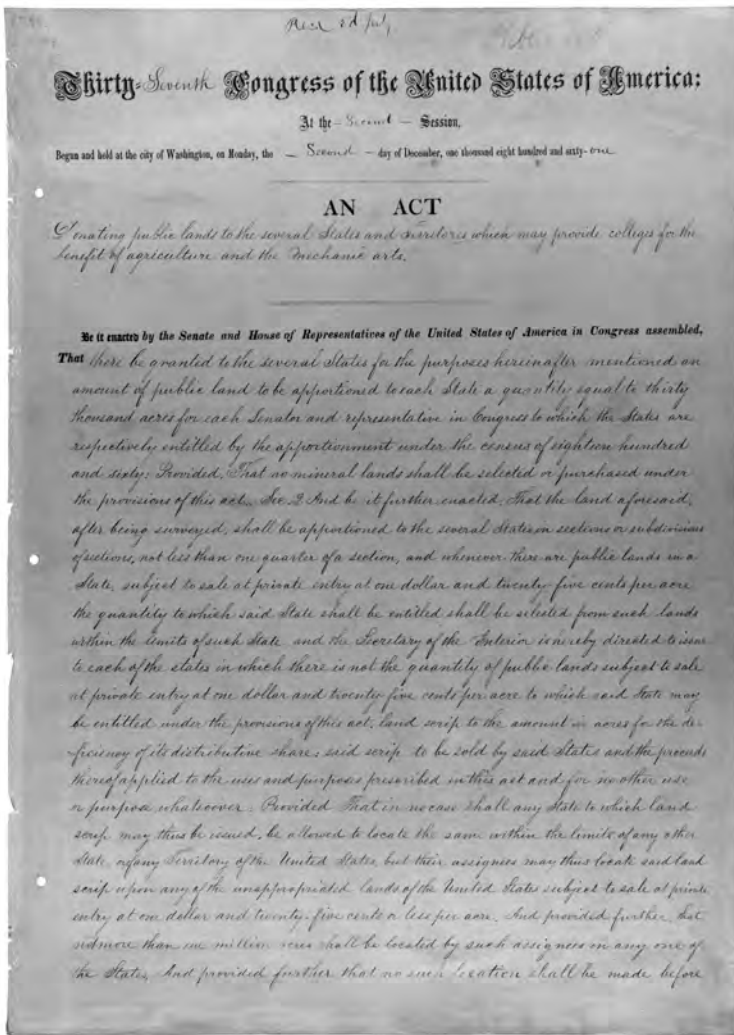 Thirty-Seventh Congress of the United States of America:
At the - Second - Session,
Began and held at the city of Washington, on Monday, the - Second - day of December, one thousand eight hundred and sixty-one
AN ACT
Donating public lands to the several States and Territories which may provide colleges for the
benefit of agriculture and the Mechanic arts.
Be it enacted by the Senate and House of Representatives of the United States of America in Congress assembled,
That there be granted to the several States for the purposes hereinafter mentioned an
amount of public land to be apportioned to each State a quantity equal to thirty
thousand acres for each Senator and representative in Congress to which the States are
respectively entitled by the apportionment under the census of eighteen hundred
and sixty: Provided, That no mineral lands shall be selected or purchased under
the provisions of this act. Sec. 2. And be it further enacted, That the land aforesaid,
after being surveyed, shall be apportioned to the several States in sections or subdivisions
of sections, not less than one quarter of a section, and whenever there are public lands in a
State, subject to sale at private entry at one dollar and twenty-five cents per acre
the quantity to which said State shall be entitled shall be selected from such lands
within the limits of such State and the Secretary of the Interior is hereby directed to issue
to each of the states in which there is not the quantity of public lands subject to sale
at private entry at one dollar and twenty five cents per acre to which said State may
be entitled under the provisions of this act, land scrip to the amount in acres for the de-
ficiency of its distributive share; said scrip to be sold by said States and the proceeds
thereof applied to the uses and purposes prescribed in this act and for no other use
or purpose whatsoever: Provided That in no case shall any State to which land
scrip may thus be issued, be allowed to locate the same within the limits of any other
State, or of any Territory of the United States, but their assignees may thus locate said land
scrip upon any of the unappropriated lands of the United States subject to sale at private
entry at one dollar and twenty-five cents or less per acre. And provided further, That
not more than one million acres shall be located by such assignees in any one of
the States, And provided further that no such location shall be made before